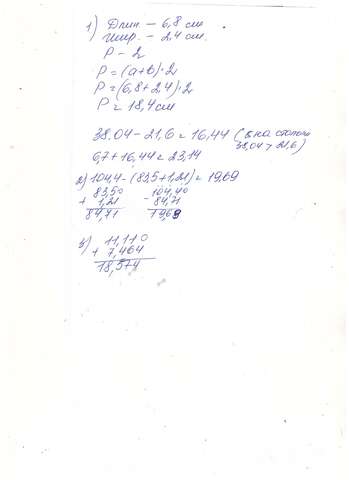 1) Длин. - 6,8 см
Шир. - 2,4 см.
P - 2
P = (a+b)·2
P = (6,8+2,4)·2
P = 18,4 см
38.04 - 21,6 = 16,44 (
38,04 > 21,6)
6,7 + 16,44 = 23,14
2) 104,4 - (83,5+1,21) = 19,69
+ 83,50 - 104,40
1,21 84,71
84,71 19,69
3) 11,110
+ 7,464
18,574